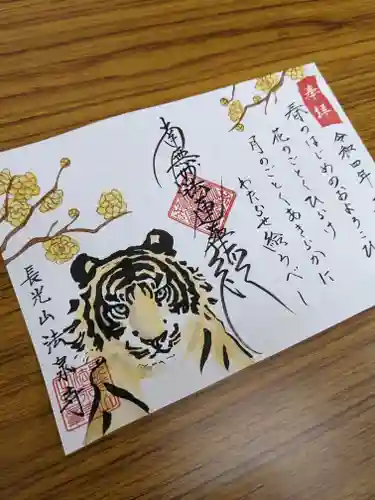 奉拝
令和四年
春のはじめのおよろこび
花のごとくひらけ
月のごとくあきらかに
わたらせ給うべし
南無妙法蓮華経
長光山法泉寺